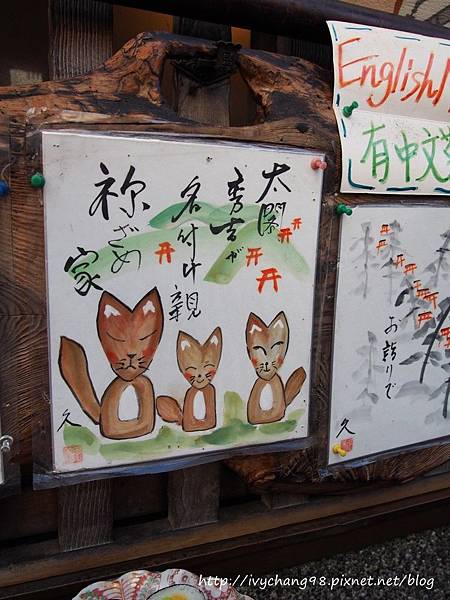 太閤
秀吉が
名付け親
祢ざめ
家
久
English
有中文菜
お詣りで
久
http://ivychang98.pixnet.net/blog